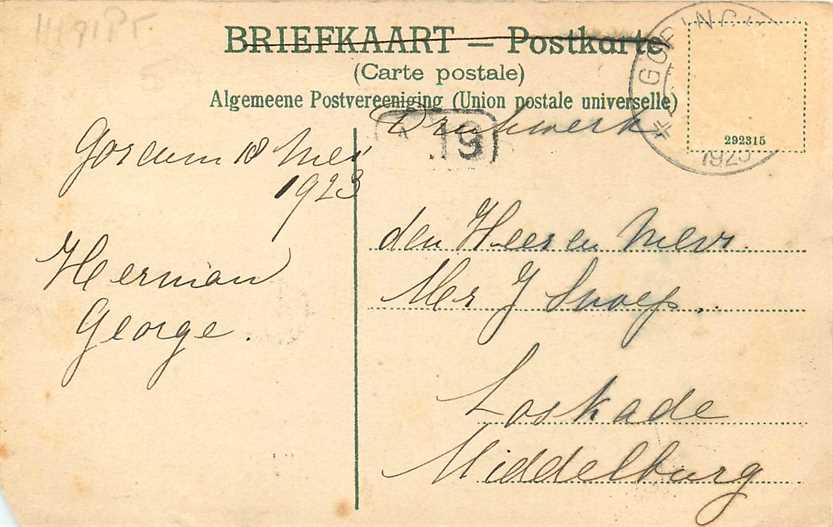 BRIEFKAART — Postkarte
(Carte postale)
Algemeene Postvereeniging (Union postale universelle)
Drukwerk
19
GORINCH
1923
292315
Gorcum 18 Mei
1923
Herman
George.
den Heer en Mevr.
Mr J Snoep.
Loskade
Middelburg